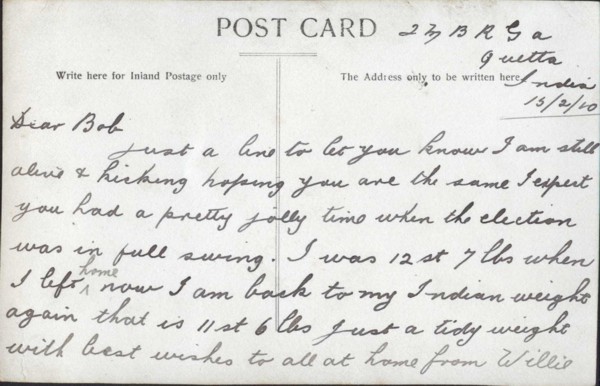 POST CARD
27 B R G a
Quetta
India
15/2/10
Write here for Inland Postage only
The Address only to be written here
Dear Bob
just a line to let you know I am still
alive & kicking hoping you are the same I expect
you had a pretty jolly time when the election
was in full swing. I was 12 st 7 lbs when
I left home now I am back to my Indian weight
again that is 11 st 6 lbs just a tidy weight
with best wishes to all at home from Willie